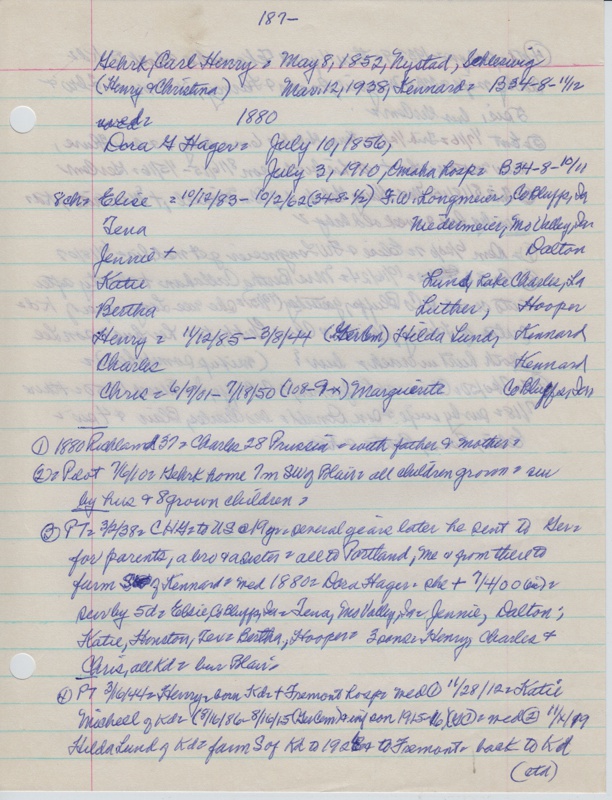 187-
Gehrk, Carl Henry = May 8, 1852, Nystad, Schleswig
(Henry & Christina) Mar. 12, 1938, Kennard = B34-8-11/12
med = 1880
Dora G Hager = July 10, 1856,
July 3, 1910, Omaha hosp = B34-8-10/11
8 ch = Elise = 10/12/83 - 10/2/62 (34-8-1/2) F.W. Longmeier, Co Bluffs, Ia
Tena Niedermeier, Mo Valley, Ia
Jennie + Dalton
Katie Lund, Lake Charles, La
Bertha Luther, Hooper
Henry = 11/12/85 - 3/8/44 (Ger Cem) Hilda Lund, Kennard
Charles Kennard
Chris = 6/9/01 - 7/18/50 (108-9 ) Marguerite Co Bluffs, Ia
① 1880 Richland 37 = Charles 28 Prussia = with father & mother =
② = Pilot 7/6/10 = Gehrk home 7m SW of Blair = all children grown = sur
by hus & 8 grown children =
③ PT = 3/2/38 = CHG = to US @ 19 yr = several years later he sent to Ger =
for parents, a bro & a sister = all to Portland, Me & from there to
farm S of Kennard = med 1880 = Dora Hager = she + 7/4/00 =
surv by 5d = Elsie, Co Bluffs, Ia = Tena, Mo Valley, Ia = Jennie, Dalton;
Katie, Houston, Tex = Bertha, Hooper = 3 sons = Henry, Charles &
Chris, all Kd = bur Blair =
④ PT 3/16/44 = Henry = born Kd = + Fremont hosp = med ① 11/28/12 = Katie
Micheel of Kd = (3/16/86 - 8/16/15 (Ger Cem) = inf son 1915-16 = med ② 11/4/19
Hilda Lund of Kd = farm S of Kd to to Fremont = back to Kd
(ctd)